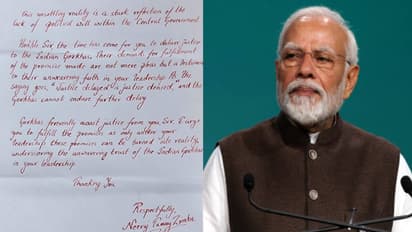 this unsettling reality is a stark reflection of the
lack of political will within the Central Government.
Hon'ble Sir, the time has come for you to deliver justice
to the Indian Gorkhas. Their demand for fulfillment
of the promises made are not mere pleas but a testament
to their unwavering faith in your leadership. As the
saying goes, "Justice delayed is justice denied", and the
Gorkhas cannot endure further delay.
Gorkhas fervently await justice from you Sir. I urge
you to fulfill the promises as only under your
leadership these promises can be turned into reality,
underscoring the unwavering trust of the Indian Gorkhas
in your leadership.
Thanking You
Respectfully,
Neeraj Zimba